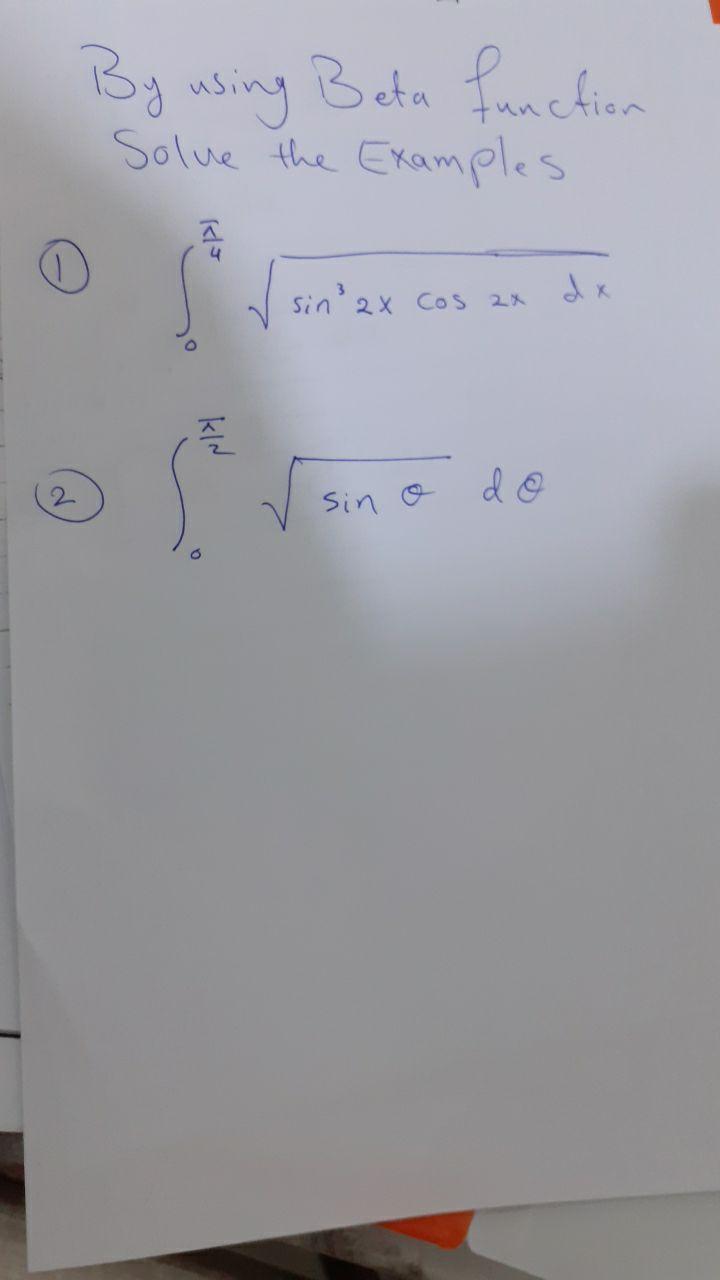 By using Beta function
Solve the Examples
① ∫₀^(π/4) √(sin³ 2x cos 2x dx)
② ∫₀^(π/2) √(sin θ) dθ